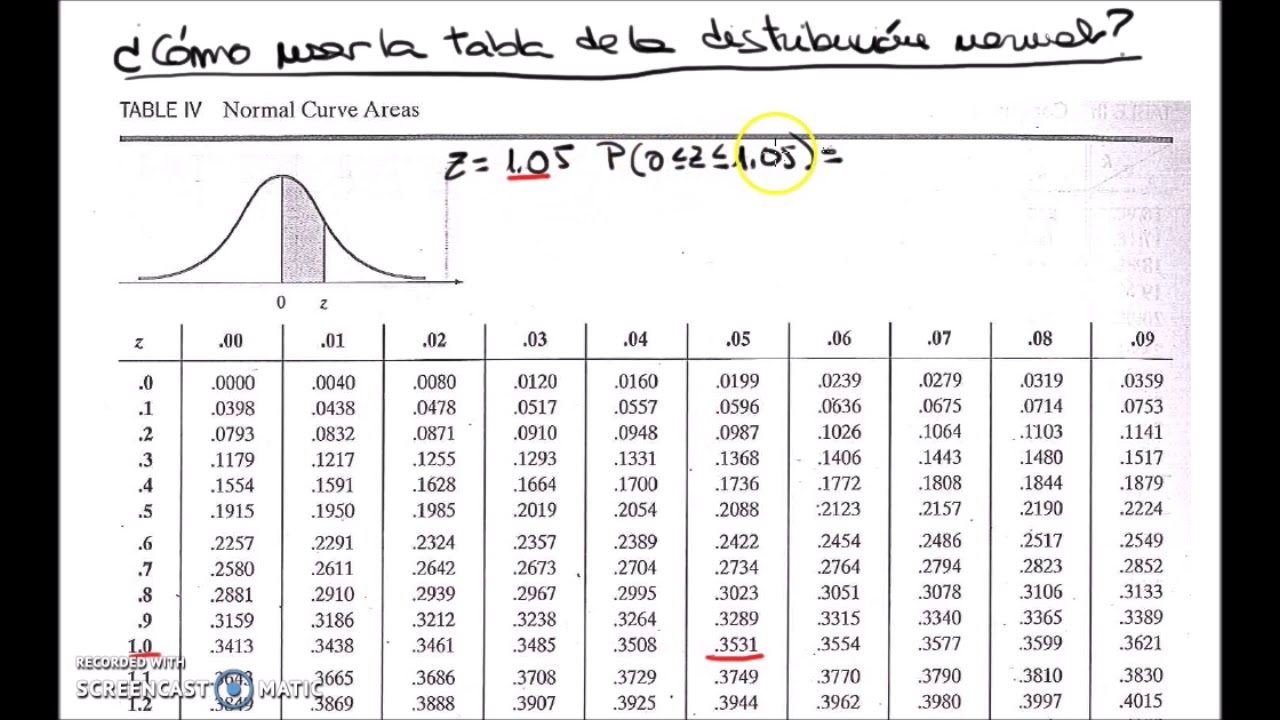 ¿Cómo usar la tabla de la distribución normal?
TABLE IV Normal Curve Areas
z = 1.05 P(0 ≤ z ≤ 1.05) =
0 z
z .00 .01 .02 .03 .04 .05 .06 .07 .08 .09
.0 .0000 .0040 .0080 .0120 .0160 .0199 .0239 .0279 .0319 .0359
.1 .0398 .0438 .0478 .0517 .0557 .0596 .0636 .0675 .0714 .0753
.2 .0793 .0832 .0871 .0910 .0948 .0987 .1026 .1064 .1103 .1141
.3 .1179 .1217 .1255 .1293 .1331 .1368 .1406 .1443 .1480 .1517
.4 .1554 .1591 .1628 .1664 .1700 .1736 .1772 .1808 .1844 .1879
.5 .1915 .1950 .1985 .2019 .2054 .2088 .2123 .2157 .2190 .2224
.6 .2257 .2291 .2324 .2357 .2389 .2422 .2454 .2486 .2517 .2549
.7 .2580 .2611 .2642 .2673 .2704 .2734 .2764 .2794 .2823 .2852
.8 .2881 .2910 .2939 .2967 .2995 .3023 .3051 .3078 .3106 .3133
.9 .3159 .3186 .3212 .3238 .3264 .3289 .3315 .3340 .3365 .3389
1.0 .3413 .3438 .3461 .3485 .3508 .3531 .3554 .3577 .3599 .3621
1.1 .3665 .3686 .3708 .3729 .3749 .3770 .3790 .3810 .3830
1.2 .3849 .3869 .3888 .3907 .3925 .3944 .3962 .3980 .3997 .4015
RECORDED WITH
SCREENCAST MATIC